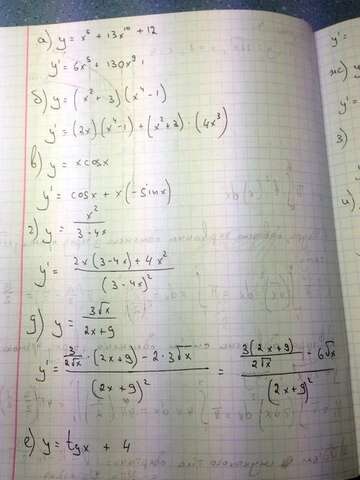 а) y = x⁶ + 13x¹⁰ + 12
y' = 6x⁵ + 130x⁹
б) y = (x² + 3)(x⁴ - 1)
y' = (2x)(x⁴ - 1) + (x² + 3) · (4x³)
в) y = x cos x
y' = cos x + x(-sin x)
г) y = x² / (3 - 4x)
y' = (2x(3 - 4x) + 4x²) / (3 - 4x)²
д) y = 3√x / (2x + 9)
y' = (3/(2√x) · (2x + 9) - 2 · 3√x) / (2x + 9)² = (3(2x + 9)/(2√x) - 6√x) / (2x + 9)²
е) y = tg x + 4
y' =
y'
3)